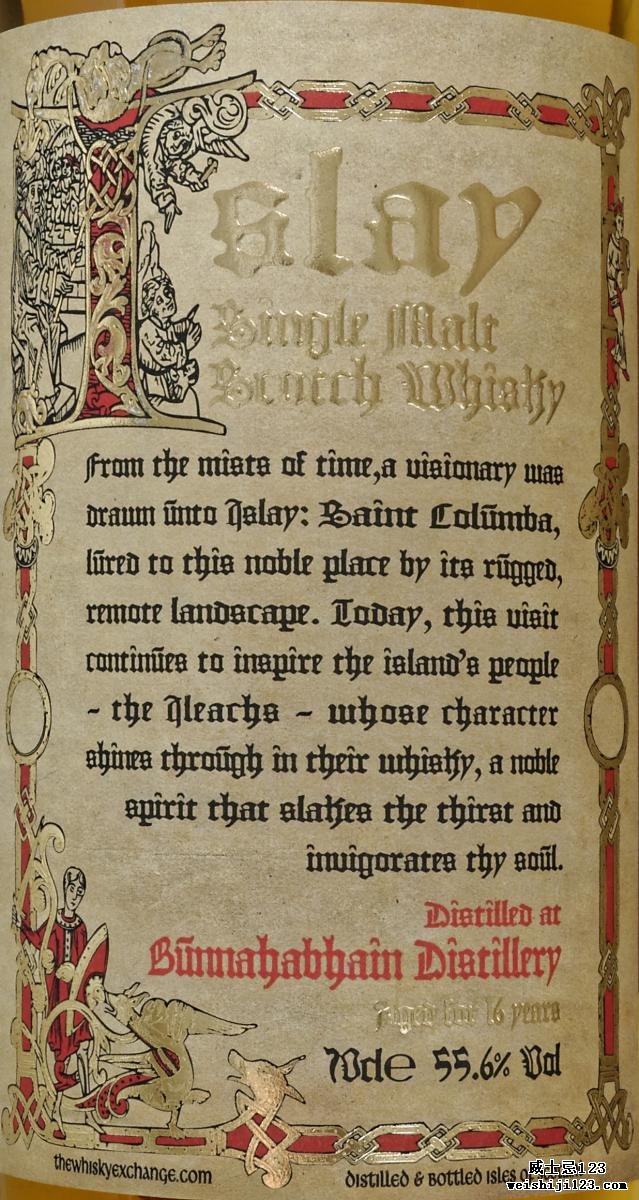 Islay
Single Malt
Scotch Whisky
From the mists of time,a visionary was
drawn ūnto Islay: Saint Colūmba,
lūred to this noble place by its rūgged,
remote landscape. Today, this visit
continūes to inspire the island's people
- the Ileachs - whose character
shines throūgh in their whisky, a noble
spirit that slakes the thirst and
invigorates thy soūl.
Distilled at
Būnnahabhain Distillery
Aged for 16 years
70cl e 55.6% Vol
thewhiskyexchange.com
distilled & bottled isles
威士忌123
weishiji123.com